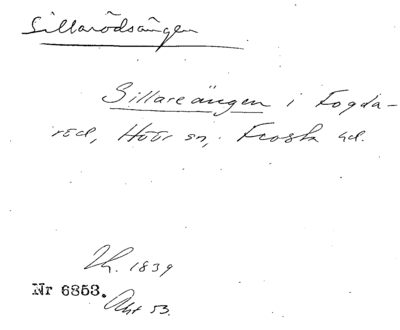 Sillarödsängen
Sillareängen i Fogda-
röd, Höör sn, Frosta hd.
Lh. 1839
Nr 6853.
Akt 53.